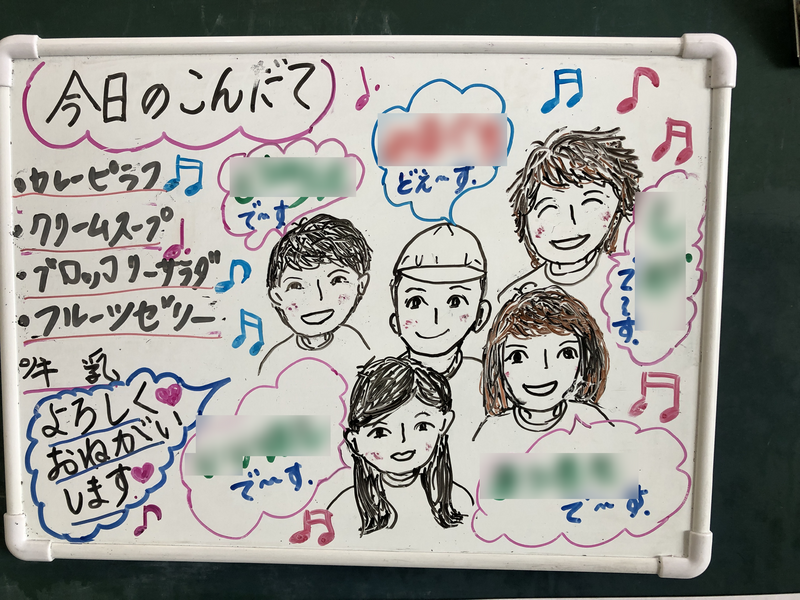 今日のこんだて
・カレーピラフ
・クリームスープ
・ブロッコリーサラダ
・フルーツゼリー
・牛乳
よろしく
おねがい
します
で〜す。
どえ〜す。
で〜す。
で〜す。
で〜す。